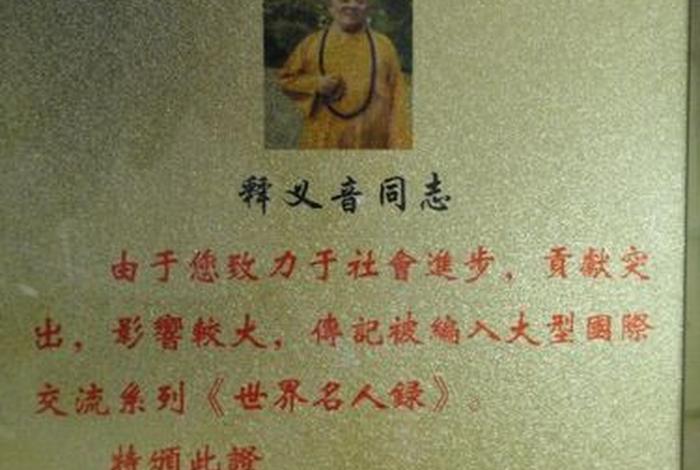 释义音同志
由于您致力于社會進步，貢獻突
出，影響較大，傳記被編入大型國際
交流系列《世界名人録》。
特頒此證